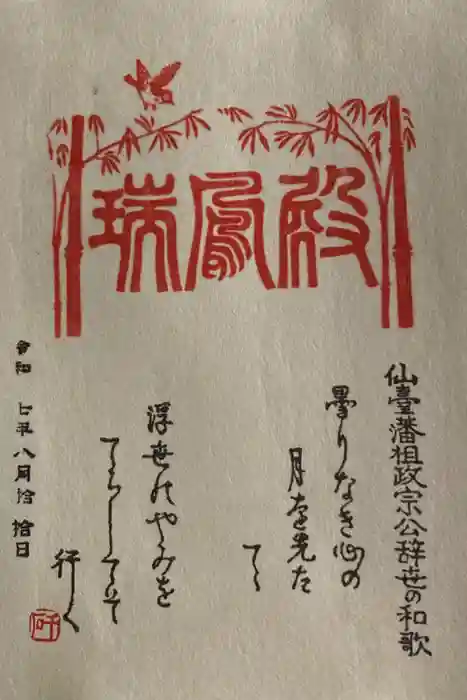 瑞鳳殿
仙臺藩祖政宗公辞世の和歌
曇りなき心の
月を先た
てゝ
浮世のやみを
てらしてそ
行く
令和 七年 八月 拾 拾日